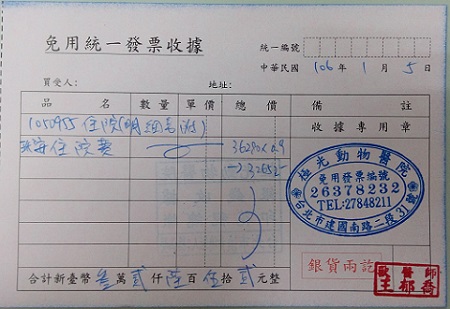 免用統一發票收據
統一編號
中華民國 106 年 1 月 5 日
買受人： 地址：
品 名 數量 單價 總價 備 註
1050955 住院(明細如附) 36280x0.9
住院費 → 32652
收據專用章
極光動物醫院
免用發票編號
26378232
TEL:27848211
台北市建國南路二段31號
銀貨兩訖
合計新臺幣 叁 萬 貳 仟 陸 百 伍 拾 貳 元整
醫師
王郁喬